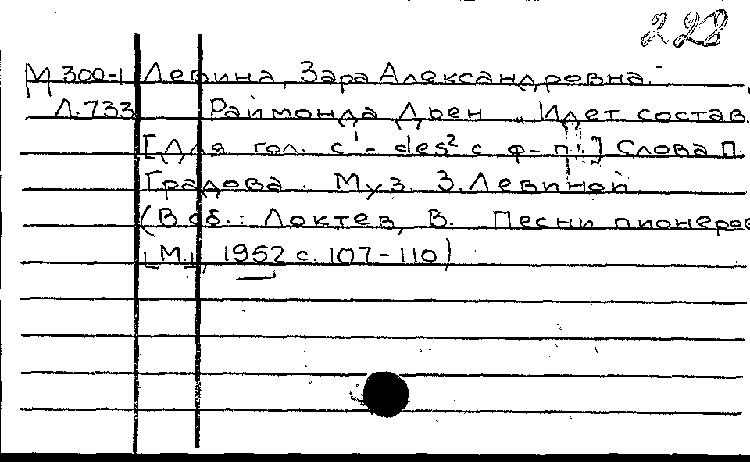 228
М 300-1 Левина, Зара Александровна.
Л. 733 Раймонда Дьен „Идет состав.
[Для гол. c¹ - des² с ф-п.] Слова П.
Градова. Муз. З. Левиной
(В сб.: Локтев, В. Песни пионеров
[М.], 1952 с. 107-110)